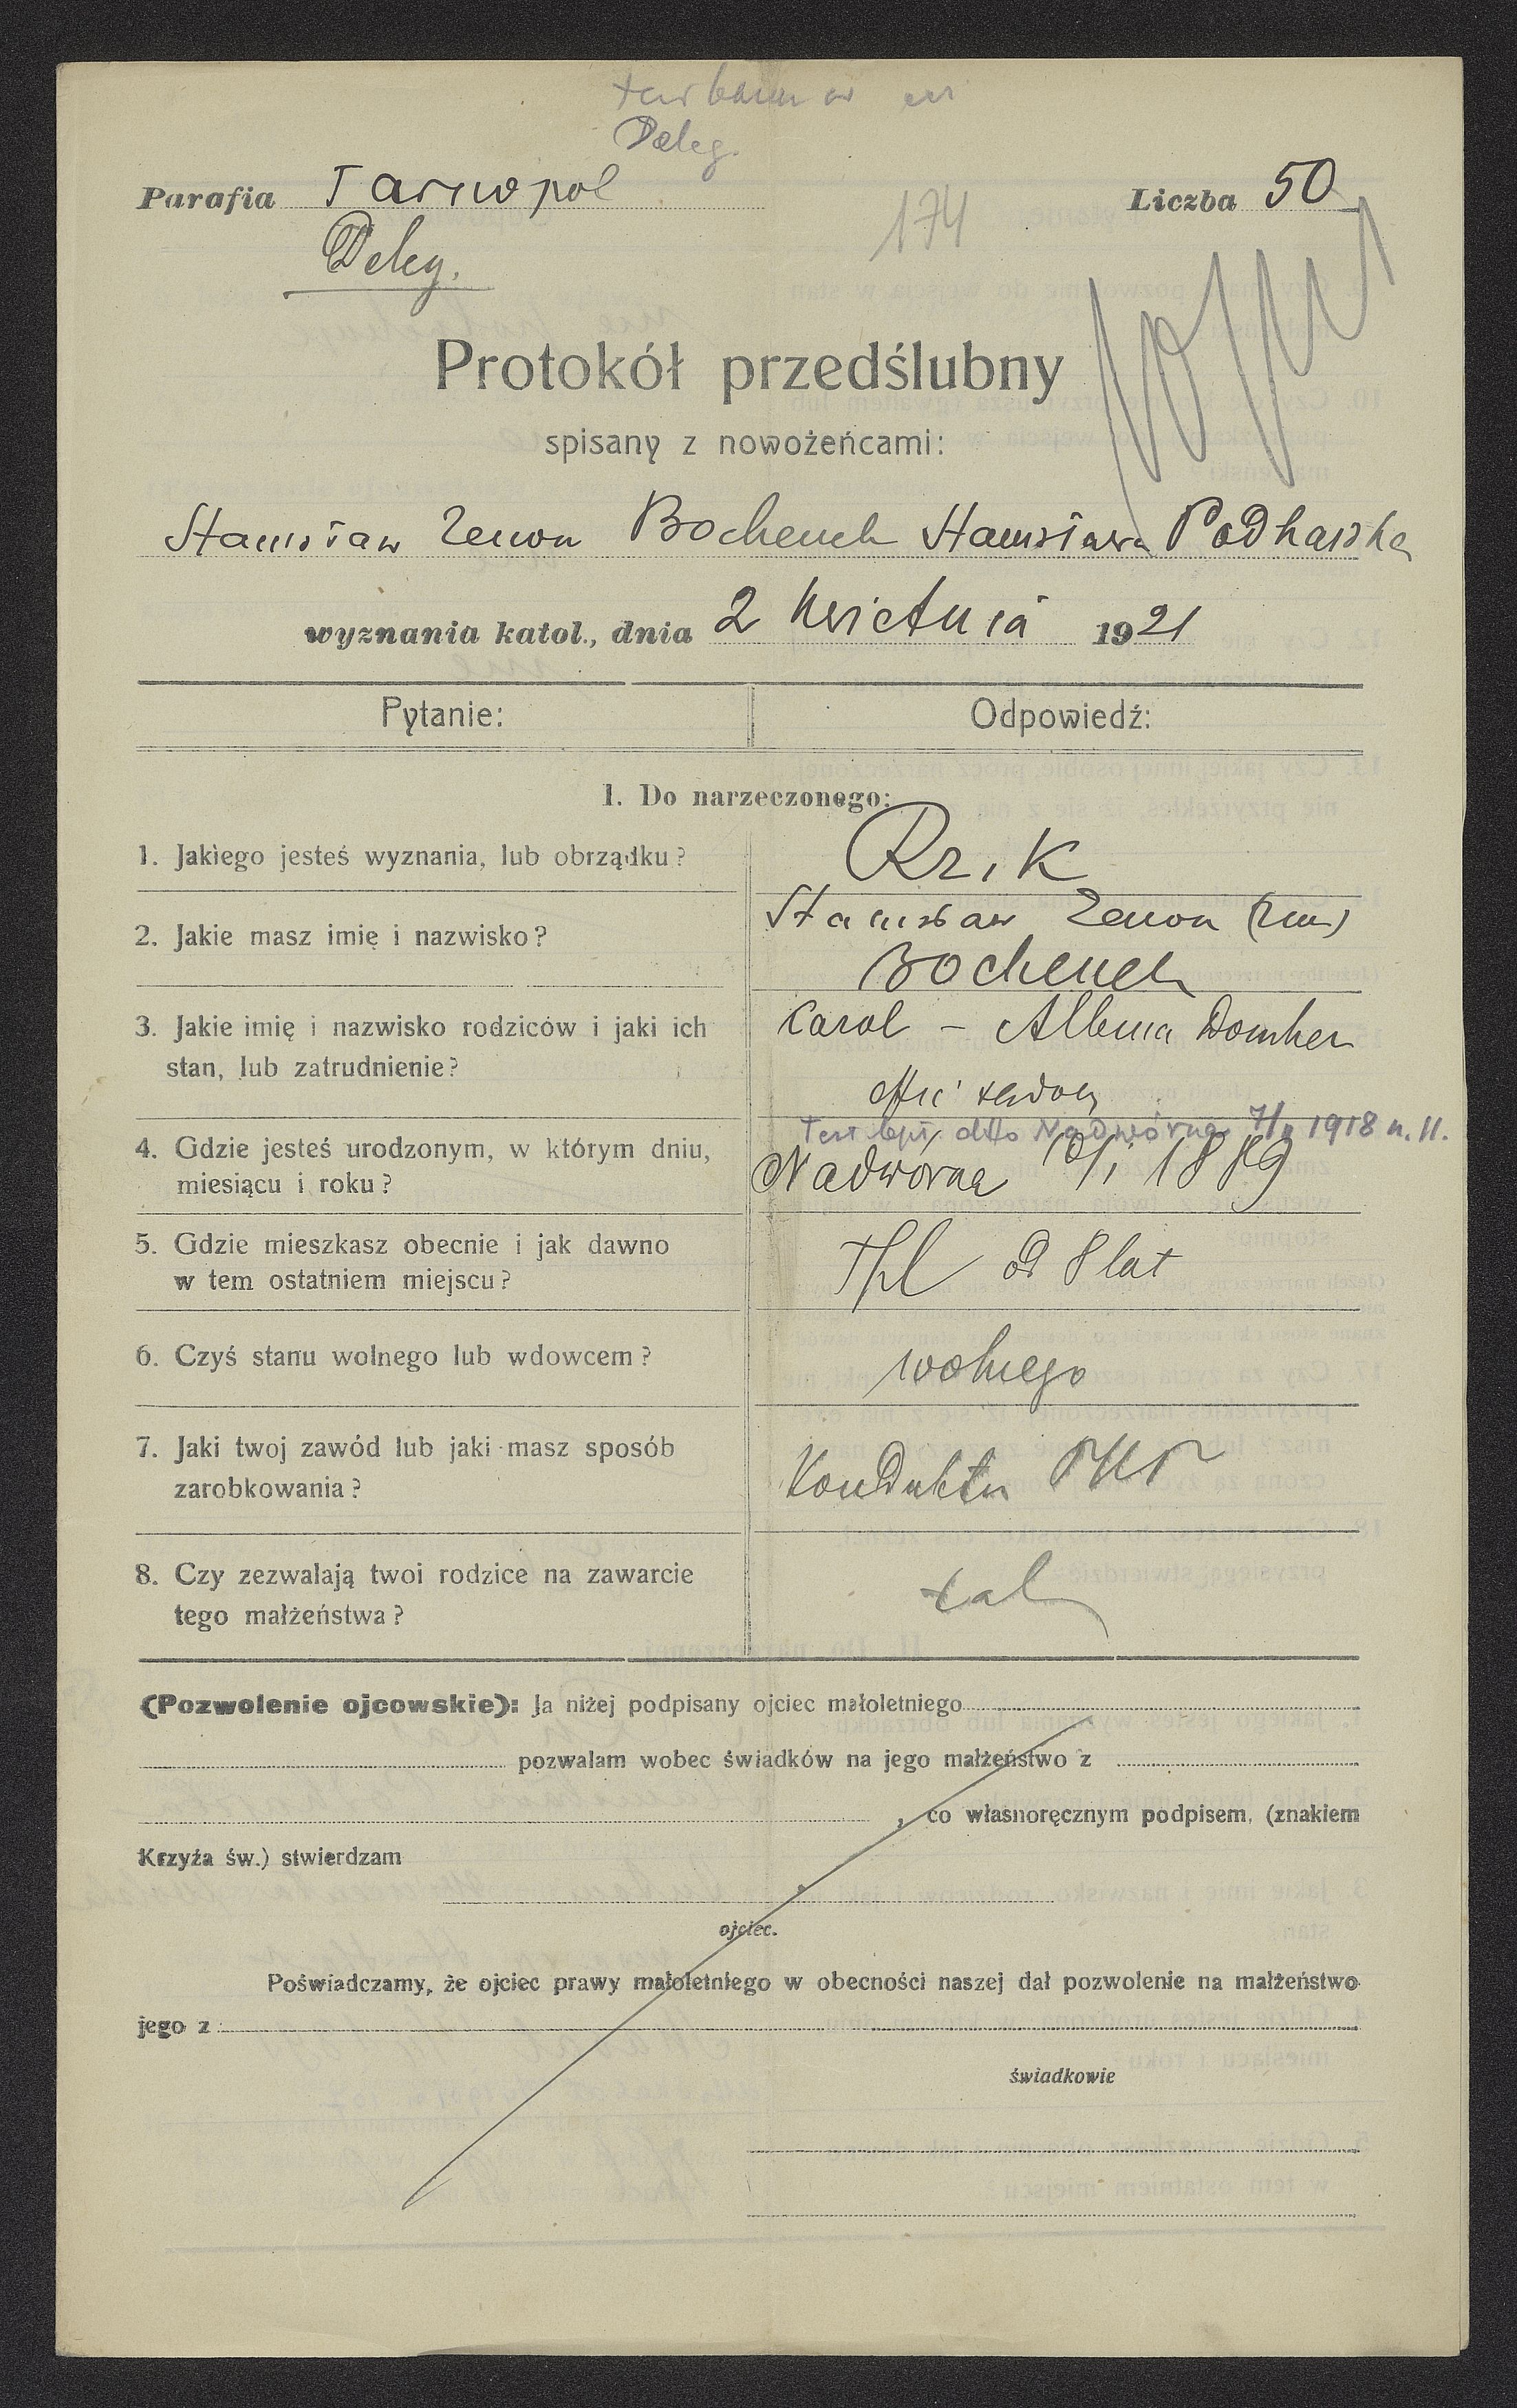 Deleg.
Parafia Tarnopol Liczba 50
Deleg.
174
Protokół przedślubny
spisany z nowożeńcami:
Stanisław Zenon Bochenek Stanisława Podhajska
wyznania katol., dnia 2 kwietnia 1921
Pytanie: Odpowiedź:
1. Do narzeczonego:
1. Jakiego jesteś wyznania, lub obrządku? Rz. K
2. Jakie masz imię i nazwisko? Stanisław Zenon
Bochenek
3. Jakie imię i nazwisko rodziców i jaki ich Karol – Albina
stan, lub zatrudnienie?
dtto Nadwórna 1918 n. 11.
4. Gdzie jesteś urodzonym, w którym dniu,
miesiącu i roku? Nadwórna 1889
5. Gdzie mieszkasz obecnie i jak dawno
w tem ostatniem miejscu? Tpl od 8 lat
6. Czyś stanu wolnego lub wdowcem? wolnego
7. Jaki twoj zawód lub jaki masz sposób
zarobkowania? Konduktor PKP
8. Czy zezwalają twoi rodzice na zawarcie
tego małżeństwa? tak
(Pozwolenie ojcowskie): Ja niżej podpisany ojciec małoletniego
pozwalam wobec świadków na jego małżeństwo z
, co własnoręcznym podpisem, (znakiem
Krzyża św.) stwierdzam
ojciec.
Poświadczamy, że ojciec prawy małoletniego w obecności naszej dał pozwolenie na małżeństwo
jego z
świadkowie